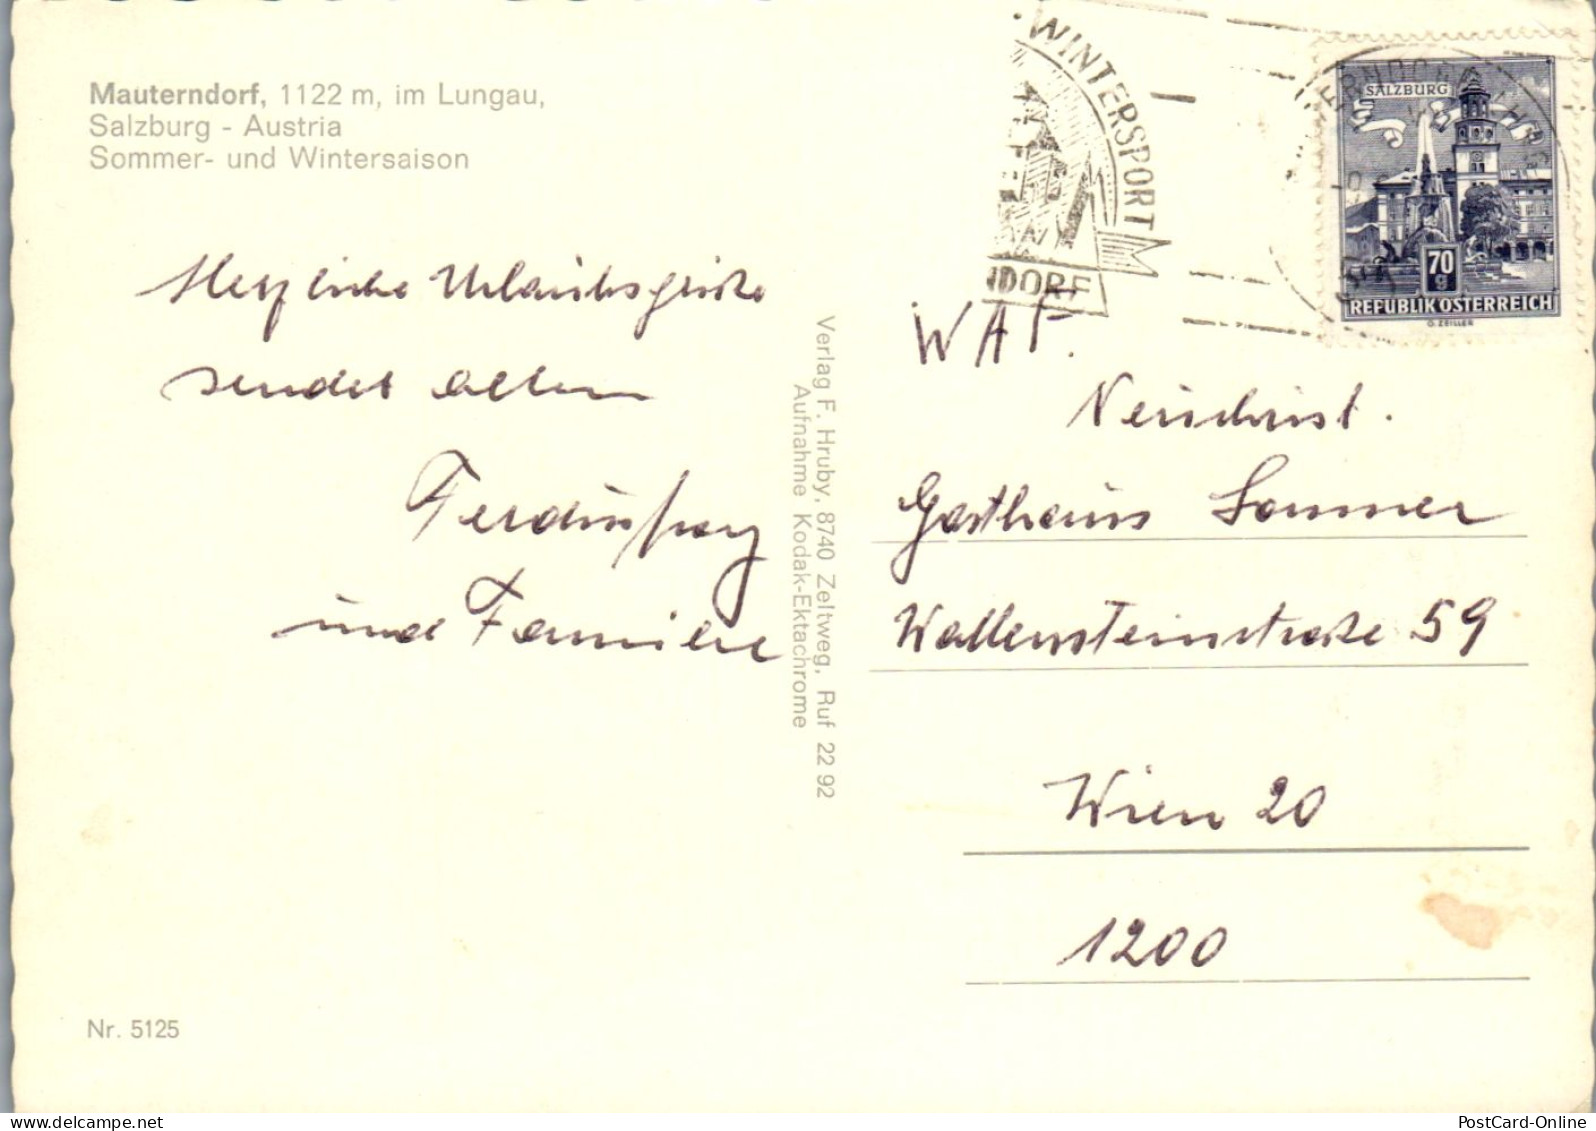 Mauterndorf, 1122 m, im Lungau,
Salzburg - Austria
Sommer- und Wintersaison
Herzliche Urlaubsgrüße
sendet allen
und Familie
Nr. 5125
Verlag F. Hruby, 8740 Zeltweg, Ruf 22 92
Aufnahme Kodak-Ektachrome
· WINTERSPORT
NDORF
SALZBURG
70
g
REPUBLIK ÖSTERREICH
O. ZEILLER
WAF.
Gasthaus Sommer
Wallensteinstraße 59
Wien 20
1200
PostCard-Online